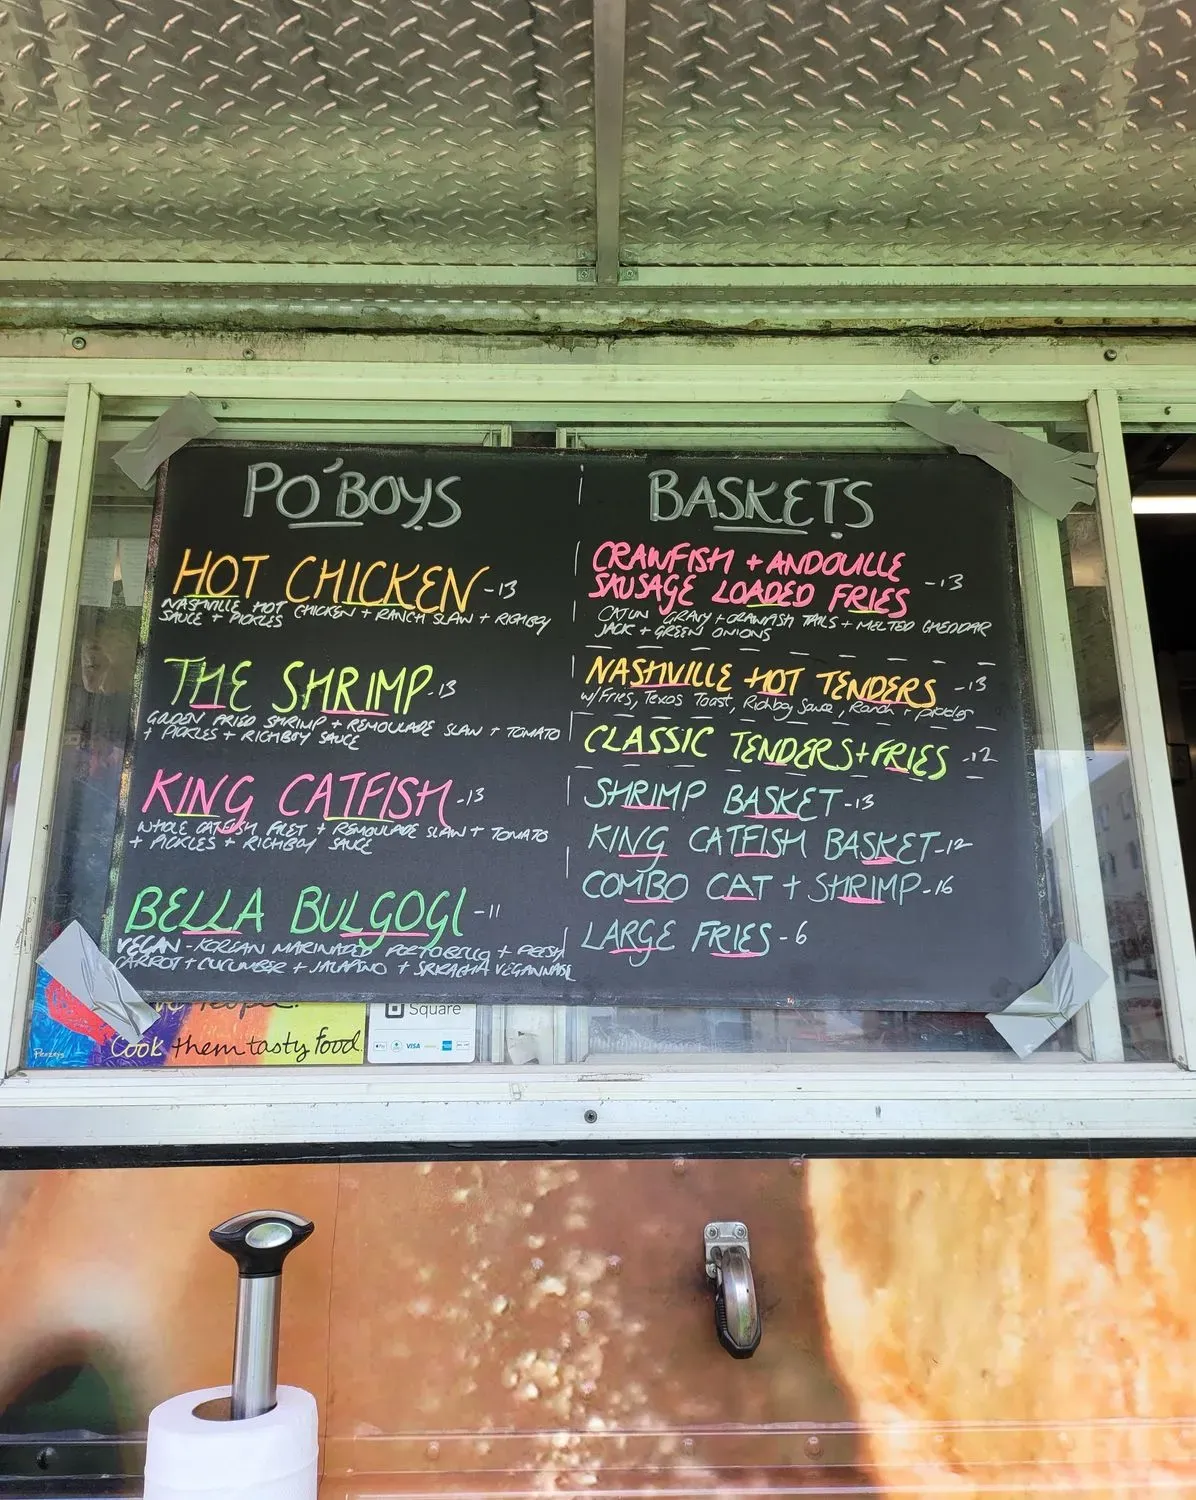 PO'BOYS
HOT CHICKEN -13
NASHVILLE HOT CHICKEN + RANCH SLAW + RICHBOY
SAUCE + PICKLES
THE SHRIMP -13
GOLDEN FRIED SHRIMP + REMOULADE SLAW + TOMATO
+ PICKLES + RICHBOY SAUCE
KING CATFISH -13
WHOLE CATFISH FILET + REMOULADE SLAW + TOMATO
+ PICKLES + RICHBOY SAUCE
BELLA BULGOGI -11
VEGAN - KOREAN MARINADED PORTOBELLO + FRESH
CARROT + CUCUMBER + JALAPINO + SRIRACHA VEGANNAISE
BASKETS
CRAWFISH + ANDOUILLE
SAUSAGE LOADED FRIES -13
CAJUN GRAVY + CRAWFISH TAILS + MELTED CHEDDAR
JACK + GREEN ONIONS
NASHVILLE HOT TENDERS -13
w/Fries, Texas Toast, Richboy Sauce, Ranch + pickles
CLASSIC TENDERS + FRIES -12
SHRIMP BASKET -13
KING CATFISH BASKET -12
COMBO CAT + SHRIMP -16
LARGE FRIES - 6
People.
Cook them tasty food.
Square
Pay
VISA